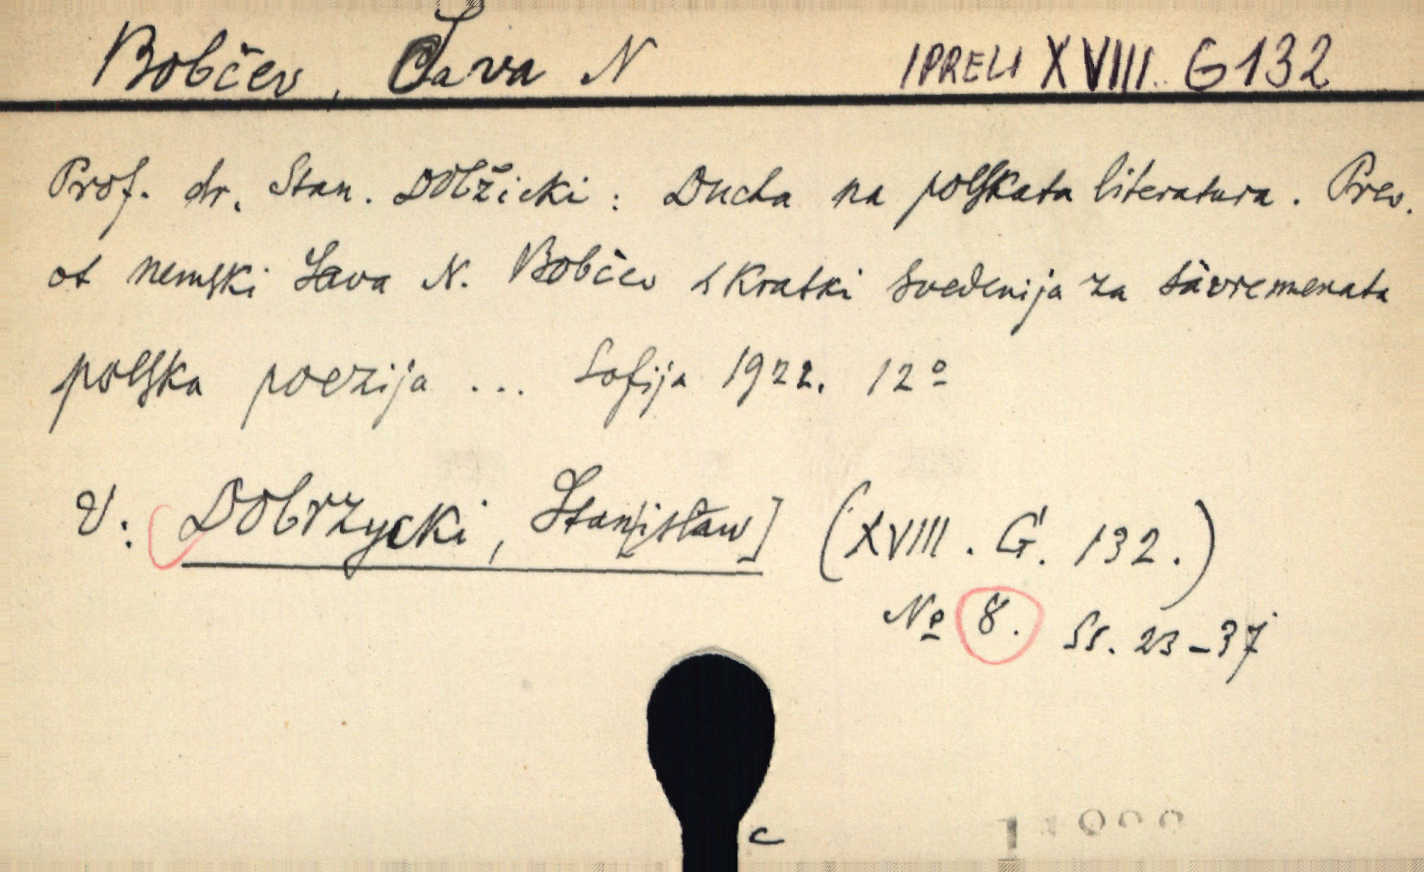 Bobčev, Sava N IPRELI XVIII. G 132
Prof. dr. Stan. Dobžicki: Ducha na polskata literatura. Prev.
ot nemski Sava N. Bobčev s kratki svedenija za săvremenata
polska poezija ... Sofija 1922. 12º
V: Dobrzycki, Stan[isław] (XVIII. G. 132.)
Nº 8. Ss. 23-37
c